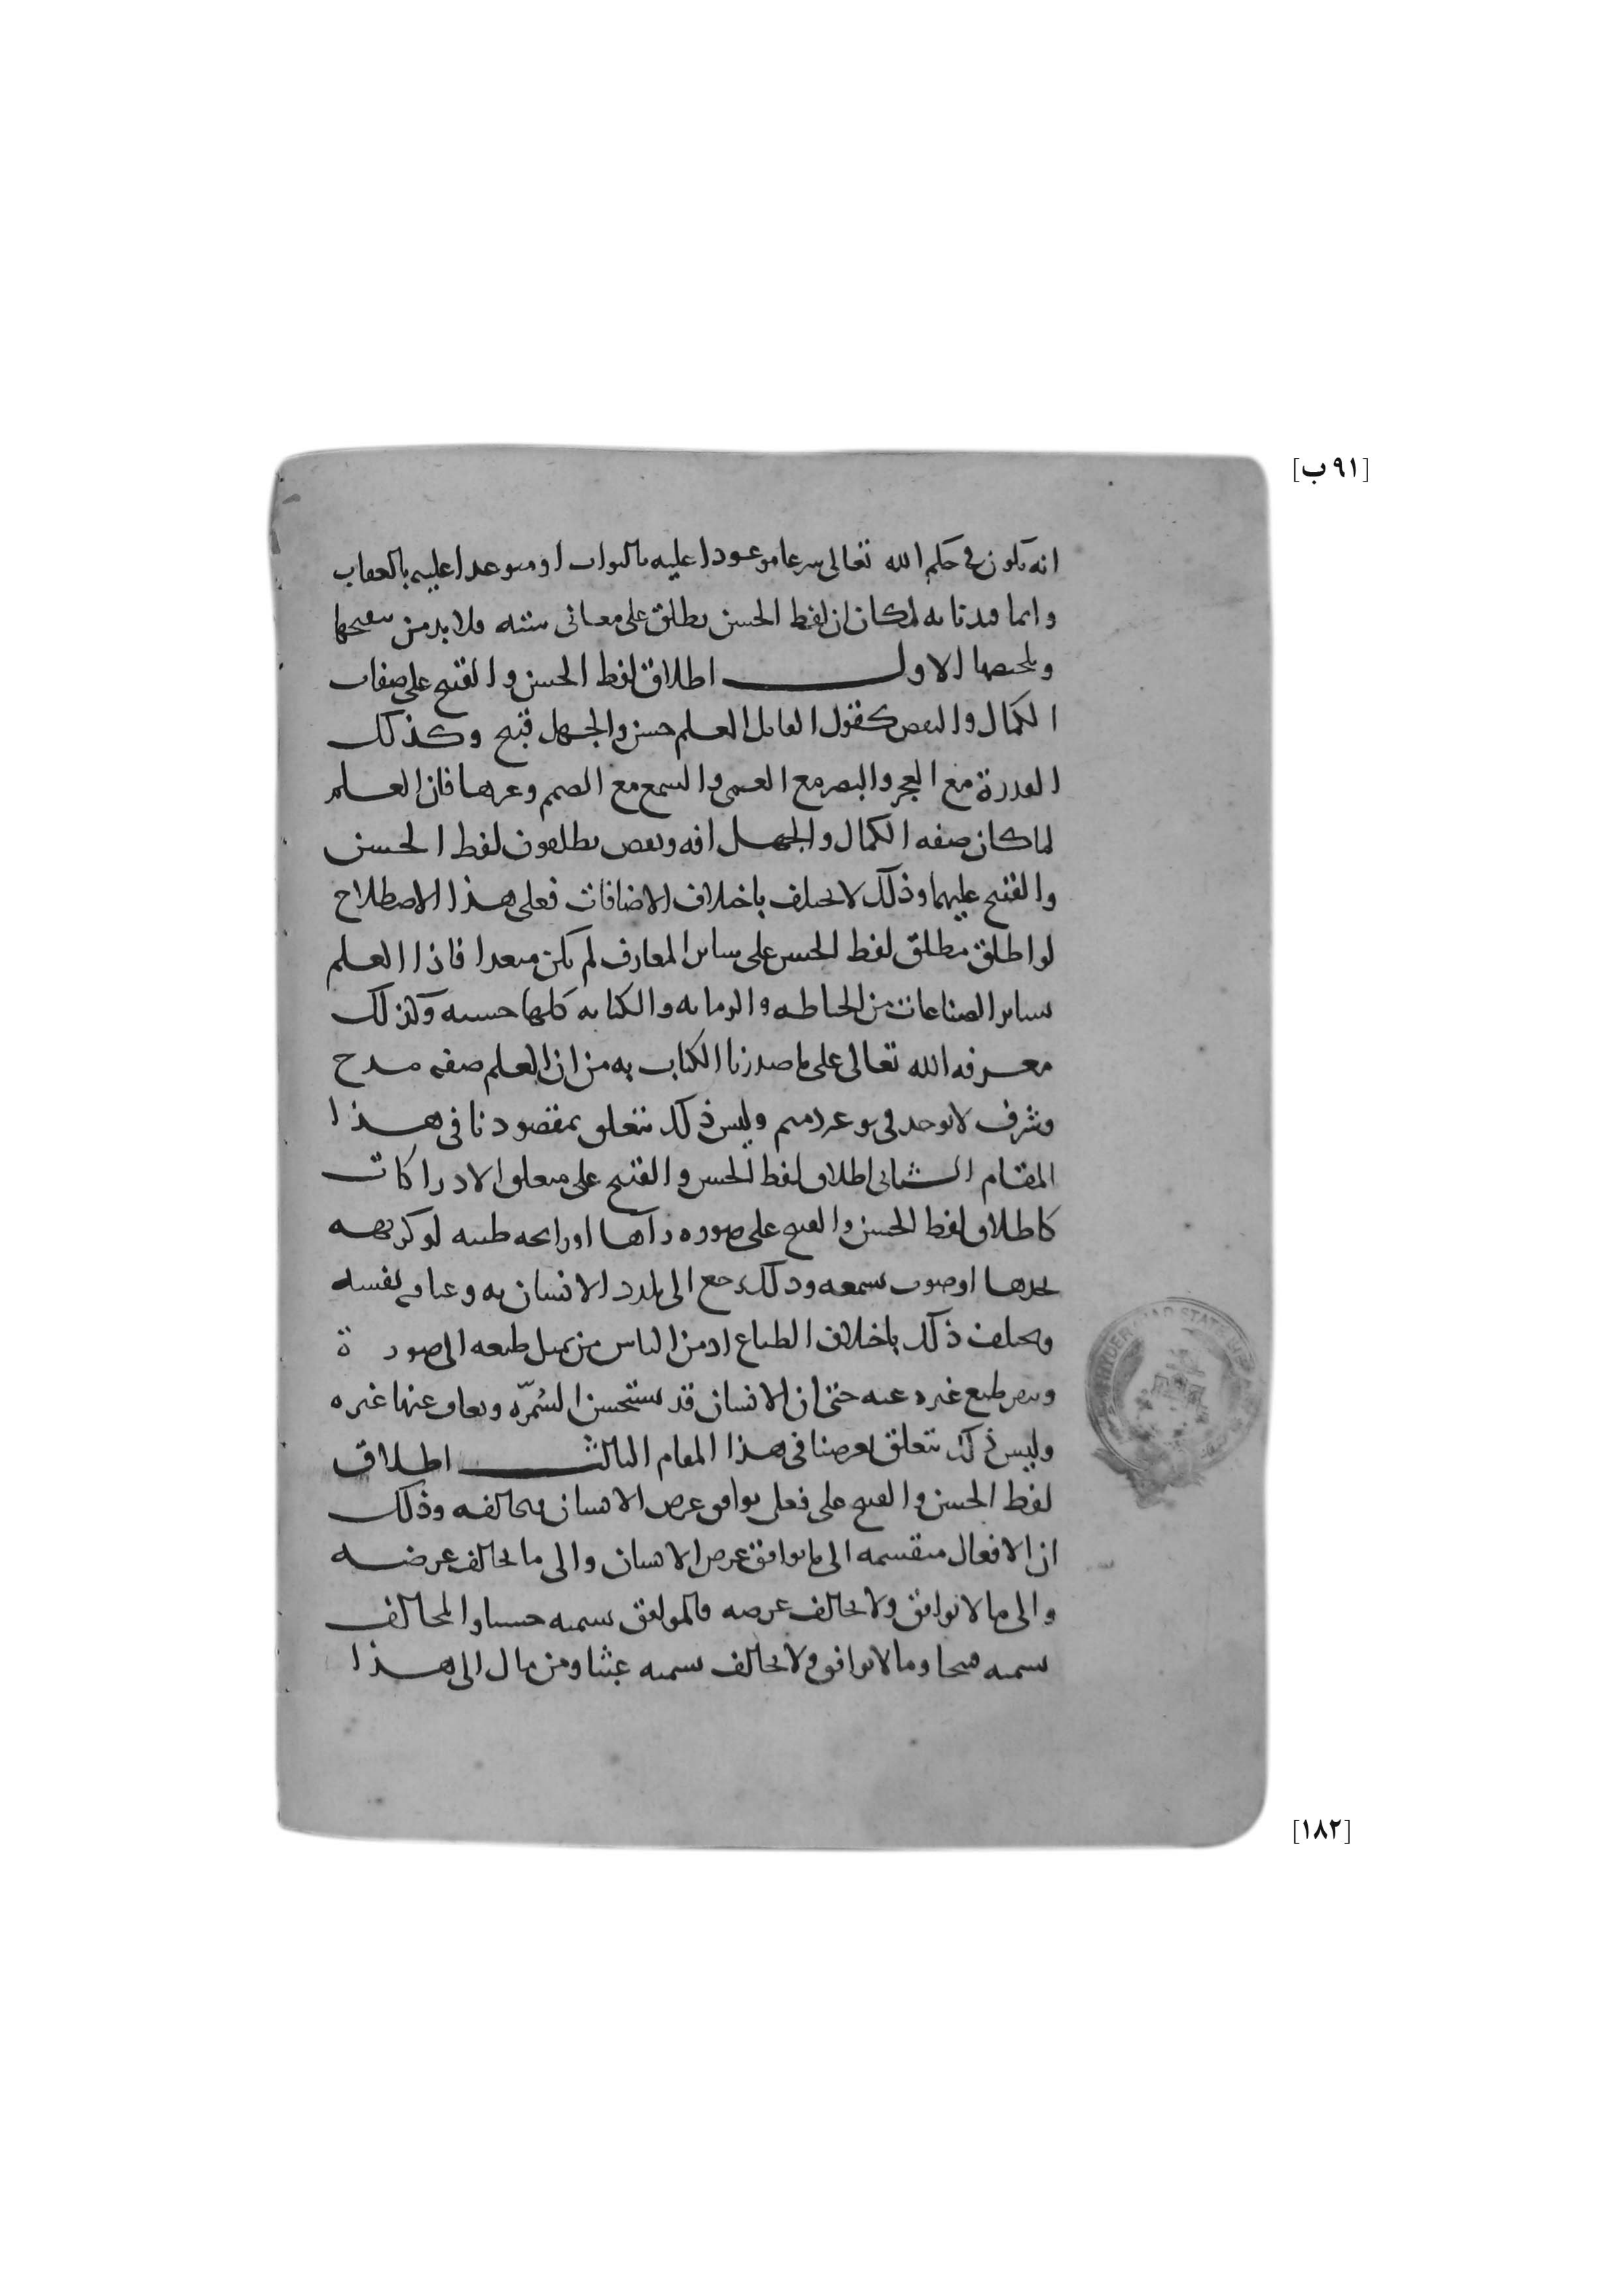 [٩١ ب]
انه يكون في حكم الله تعالى شرعا موعودا عليه بالثواب او متوعدا عليه بالعقاب
وانما قيدنا به لمكان ان لفظ الحسن يطلق على معاني ستة فلا بد من تنقيحها
وتلخيصها الاول اطلاق لفظ الحسن والقبيح على صفات
الكمال والنقص كقول القائل العلم حسن والجهل قبيح وكذلك
القدرة مع العجز والبصر مع العمى والسمع مع الصمم وغيرها فان العلم
لما كان صفة الكمال والجهل افة ونقص يطلقون لفظ الحسن
والقبيح عليهما وذلك لا يختلف باختلاف الاضافات فعلى هذا الاصطلاح
لو اطلق مطلق لفظ الحسن على سائر المعارف لم يكن مبعدا فاذا العلم
بسائر الصناعات من الخياطة والرماية والكتابة كلها حسنة وكذلك
معرفة الله تعالى على ما صدرنا الكتاب به من ان العلم صفة مدح
وشرف لا توجد في وليس ذلك يتعلق بمقصودنا في هذا
المقام الثاني اطلاق لفظ الحسن والقبيح على متعلق الادراكات
كاطلاق لفظ الحسن والقبيح على صورة رآها او رائحة طيبة او كريهة
يجدها او صوت يسمعه وذلك يرجع الى تلذذ الانسان به وعيافة نفسه
ويختلف ذلك باختلاف الطباع اذ من الناس من يميل طبعه الى صورة
وينفر طبع غيره عنه حتى ان الانسان قد يستحسن السمرة ويعاف عنها غيره
وليس ذلك يتعلق بغرضنا في هذا المقام الثالث اطلاق
لفظ الحسن والقبيح على فعل يوافق غرض الانسان ويخالفه وذلك
ان الافعال منقسمة الى ما يوافق غرض الانسان والى ما يخالف غرضه
والى ما لا يوافق ولا يخالف غرضه فالموافق نسميه حسنا والمخالف
نسميه قبيحا وما لا يوافق ولا يخالف نسميه عبثا ومن مال الى هذا
[١٨٢]